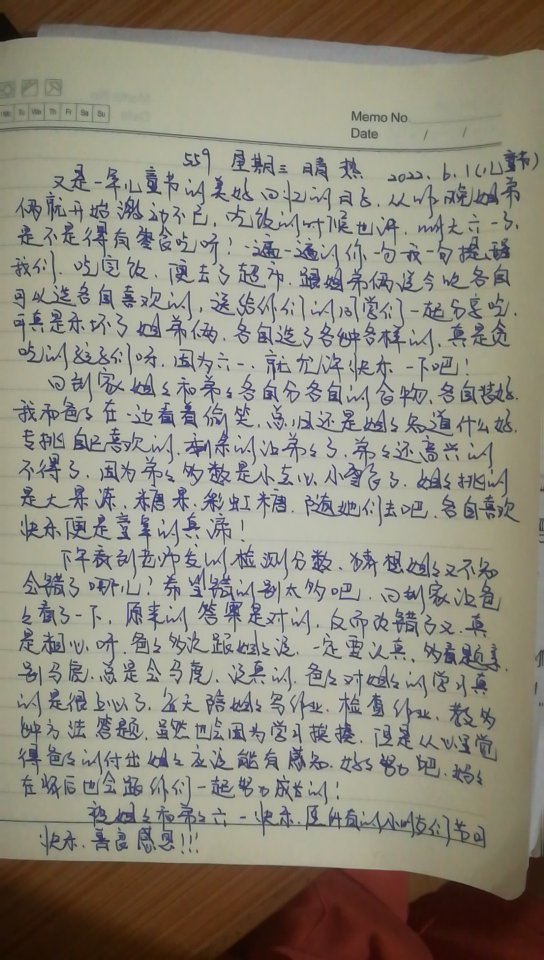 Mo Tu We Th Fr Sa Su
Memo No
Date / /
559 星期三 晴 热 2022.6.1(儿童节)
又是一年儿童节的美好回忆的日子,从昨晚姐弟
俩就开始激动不已,吃饭的时候也讲,明天六一了,
是不是得有零食吃呀!一遍一遍的你一句我一句提醒
我们,吃完饭,便去了超市,跟姐弟俩说今晚各自
可以选各自喜欢的,送给你们的同学们一起分享吃,
可真是乐坏了姐弟俩,各自选了各种各样的,真是贪
吃的孩子们呀,因为六一,就允许快乐一下吧!
回到家姐姐和弟弟各自分各自的食物,各自装好,
我和爸爸在一边看着偷笑,总归还是姐姐知道什么好,
专挑自己喜欢的,剩余的让弟弟,弟弟还高兴的
不得了,因为弟弟多数是小点心,小雪饼,姐姐挑的
是大果冻,糖果,彩虹糖,随她们去吧,各自喜欢
快乐便是童年的真谛!
下午看到老师发的检测分数,猜想姐姐又不知
会错了哪儿!希望错的别太多吧,回到家让爸
爸看了一下,原来的答案是对的,反而改错了又,真
是粗心呀,爸爸多次跟姐姐说,一定要认真,多看题,
别马虎,总是会马虎,说真的,爸爸对姐姐的学习真
的是很上心了,每天陪姐姐写作业,检查作业,教多
种方法答题,虽然也会因为学习挨揍,但是从心里觉
得爸爸的付出姐姐应该能有感知,好好努力吧,妈妈
在背后也会跟你们一起努力成长的!
祝姐姐和弟弟六一快乐,所有的小朋友们节日
快乐,善良感恩!!!